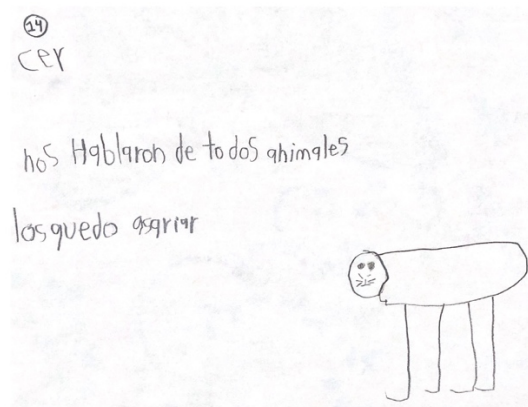 14
cer
nos Hablaron de todos animales
losquedo asariar